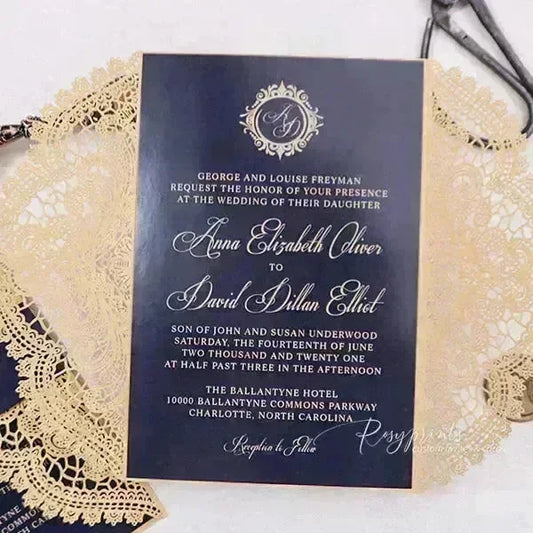 GEORGE AND LOUISE FREYMAN
REQUEST THE HONOR OF YOUR PRESENCE
AT THE WEDDING OF THEIR DAUGHTER
Anna Elizabeth Oliver
TO
David Dillan Elliot
SON OF JOHN AND SUSAN UNDERWOOD
SATURDAY, THE FOURTEENTH OF JUNE
TWO THOUSAND AND TWENTY ONE
AT HALF PAST THREE IN THE AFTERNOON
THE BALLANTYNE HOTEL
10000 BALLANTYNE COMMONS PARKWAY
CHARLOTTE, NORTH CAROLINA
Reception to Follow
Rosyprints